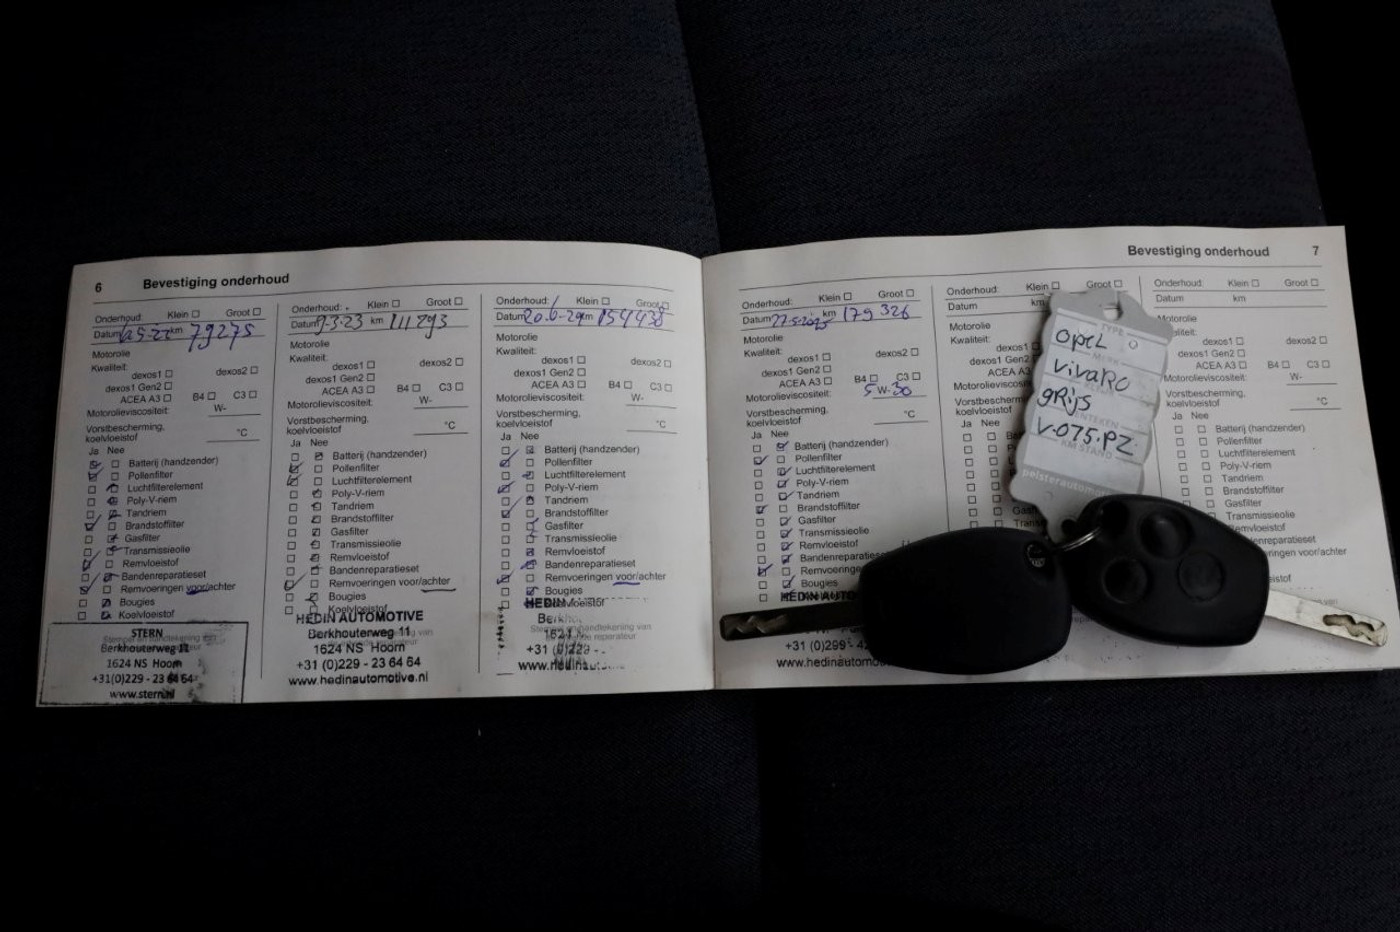 6 Bevestiging onderhoud
Onderhoud: Klein Groot
Datum km 79275
Motorolie
Kwaliteit:
dexos1 dexos2
dexos1 Gen2
ACEA A3 B4 C3
Motorolieviscositeit: W-
Vorstbescherming,
koelvloeistof °C
Ja Nee
Batterij (handzender)
Pollenfilter
Luchtfilterelement
Poly-V-riem
Tandriem
Brandstoffilter
Gasfilter
Transmissieolie
Remvloeistof
Bandenreparatieset
Remvoeringen voor/achter
Bougies
Koelvloeistof
STERN
Berkhouterweg 11
1624 NS Hoorn
+31(0)229 - 23 64 64
www.stern.nl
Onderhoud: Klein Groot
Datum 9-3-23 km 111293
Motorolie
Kwaliteit:
dexos1 dexos2
dexos1 Gen2
ACEA A3 B4 C3
Motorolieviscositeit: W-
Vorstbescherming,
koelvloeistof °C
Ja Nee
Batterij (handzender)
Pollenfilter
Luchtfilterelement
Poly-V-riem
Tandriem
Brandstoffilter
Gasfilter
Transmissieolie
Remvloeistof
Bandenreparatieset
Remvoeringen voor/achter
Bougies
Koelvloeistof
HEDIN AUTOMOTIVE
Berkhouterweg 11
1624 NS Hoorn
+31 (0)229 - 23 64 64
www.hedinautomotive.nl
Onderhoud: Klein Groot
Datum 20-6-24 km 154438
Motorolie
Kwaliteit:
dexos1 dexos2
dexos1 Gen2
ACEA A3 B4 C3
Motorolieviscositeit: W-
Vorstbescherming,
koelvloeistof °C
Ja Nee
Batterij (handzender)
Pollenfilter
Luchtfilterelement
Poly-V-riem
Tandriem
Brandstoffilter
Gasfilter
Transmissieolie
Remvloeistof
Bandenreparatieset
Remvoeringen voor/achter
Bougies
Koelvloeistof
HEDIN
Stempel en handtekening van
reparateur
Bevestiging onderhoud 7
Onderhoud: Klein Groot
Datum 27-5-2025 km 179326
Motorolie
Kwaliteit:
dexos1 dexos2
dexos1 Gen2
ACEA A3 B4 C3
Motorolieviscositeit: 5 W-30
Vorstbescherming,
koelvloeistof °C
Ja Nee
Batterij (handzender)
Pollenfilter
Luchtfilterelement
Poly-V-riem
Tandriem
Brandstoffilter
Gasfilter
Transmissieolie
Remvloeistof
Bandenreparatieset
Remvoeringen
Bougies
HEDIN AUTO
+31 (0)299 - 42
www.hedinautomotive
Onderhoud: Klein Groot
Datum km
Motorolie
Kwaliteit:
dexos1
dexos1 Gen2
ACEA A3
Vorstbescherming,
koelvloeistof
Ja Nee
TYPE
OPEL
MERK
VIVARO
gRijs
KENTEKEN
V-075-PZ
KM STAND
peisterautomo
Onderhoud: Klein Groot
Datum km
Motorolie
dexos1 dexos2
dexos1 Gen2
ACEA A3 B4 C3
Motorolieviscositeit: W-
Vorstbescherming,
koelvloeistof °C
Ja Nee
Batterij (handzender)
Pollenfilter
Luchtfilterelement
Poly-V-riem
Tandriem
Brandstoffilter
Gasfilter
Transmissieolie
Remvloeistof
Bandenreparatieset
Remvoeringen voor/achter